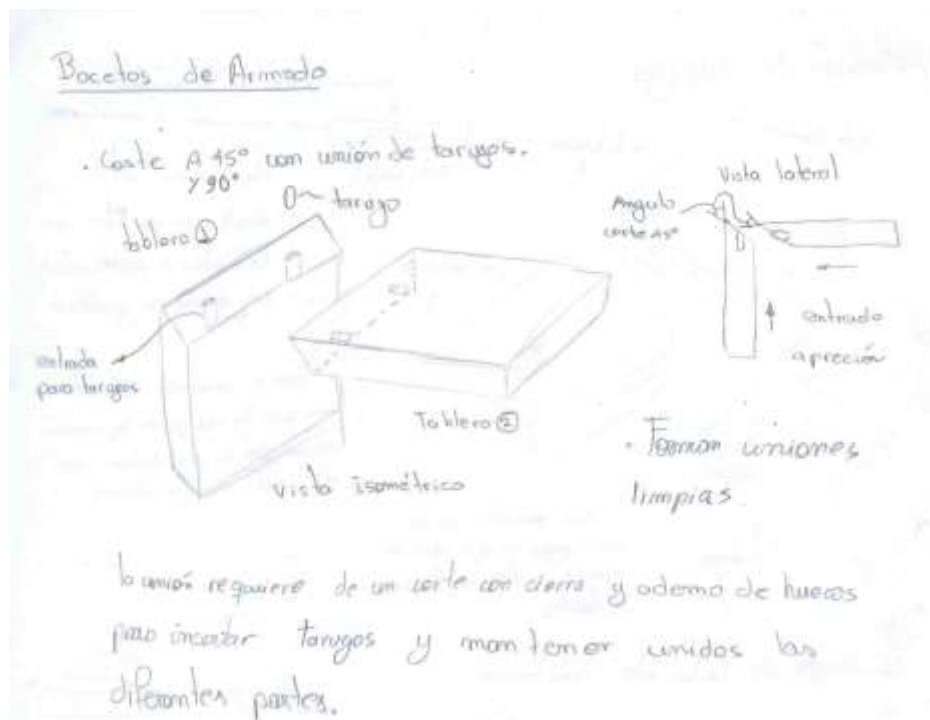 Bocetos de Armado
. Corte A 45° con unión de tarugos.
Y 90°
tarugo
tablero ①
entrada
para tarugos
Tablero ②
vista isométrica
Vista lateral
Angulo
corte 45°
entrada
apreción
. Forman uniones
limpias
la unión requiere de un corte con cierra y ademo de huecos
para incertar tarugos y mantener unidos las
diferentes partes.